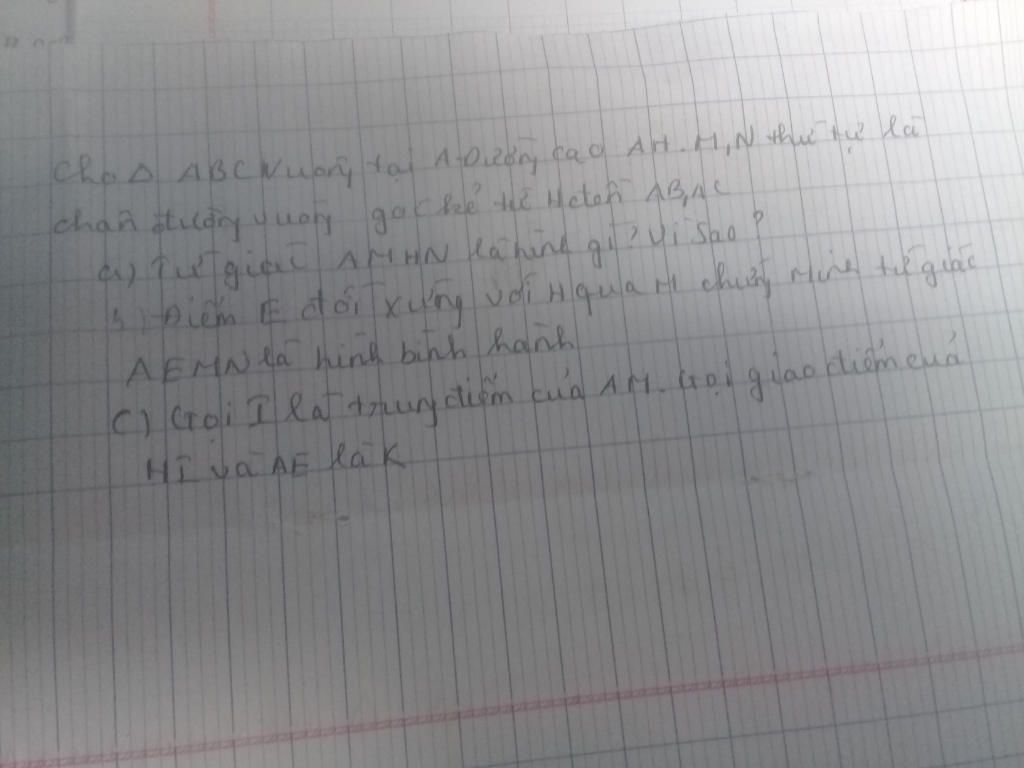 Cho Δ ABC Vuông tại A. Đường cao AH. M, N thứ tự là
chân đường vuông góc kẻ từ H đến AB, AC
a) Tứ giác AMHN là hình gì? Vì sao?
b) Điểm E đối xứng với H qua M chứng Minh tứ giác
AEMN là hình bình hành
C) Gọi I là trung điểm của AM. Gọi giao điểm của
HI và AE là K